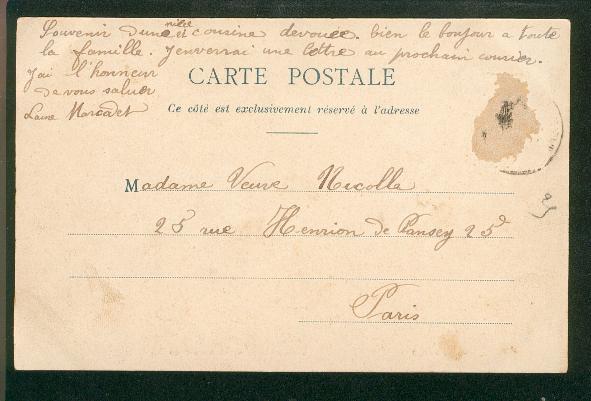 Souvenir d'une nièce et cousine devouée. bien le bonjour a toute
la famille. J'enverrai une lettre au prochain courier.
J'ai l'honneur
de vous saluer
Marcadet
CARTE POSTALE
Ce côté est exclusivement réservé à l'adresse
Madame Veuve Nicolle
25 rue Henrion de Pansey 25
Paris